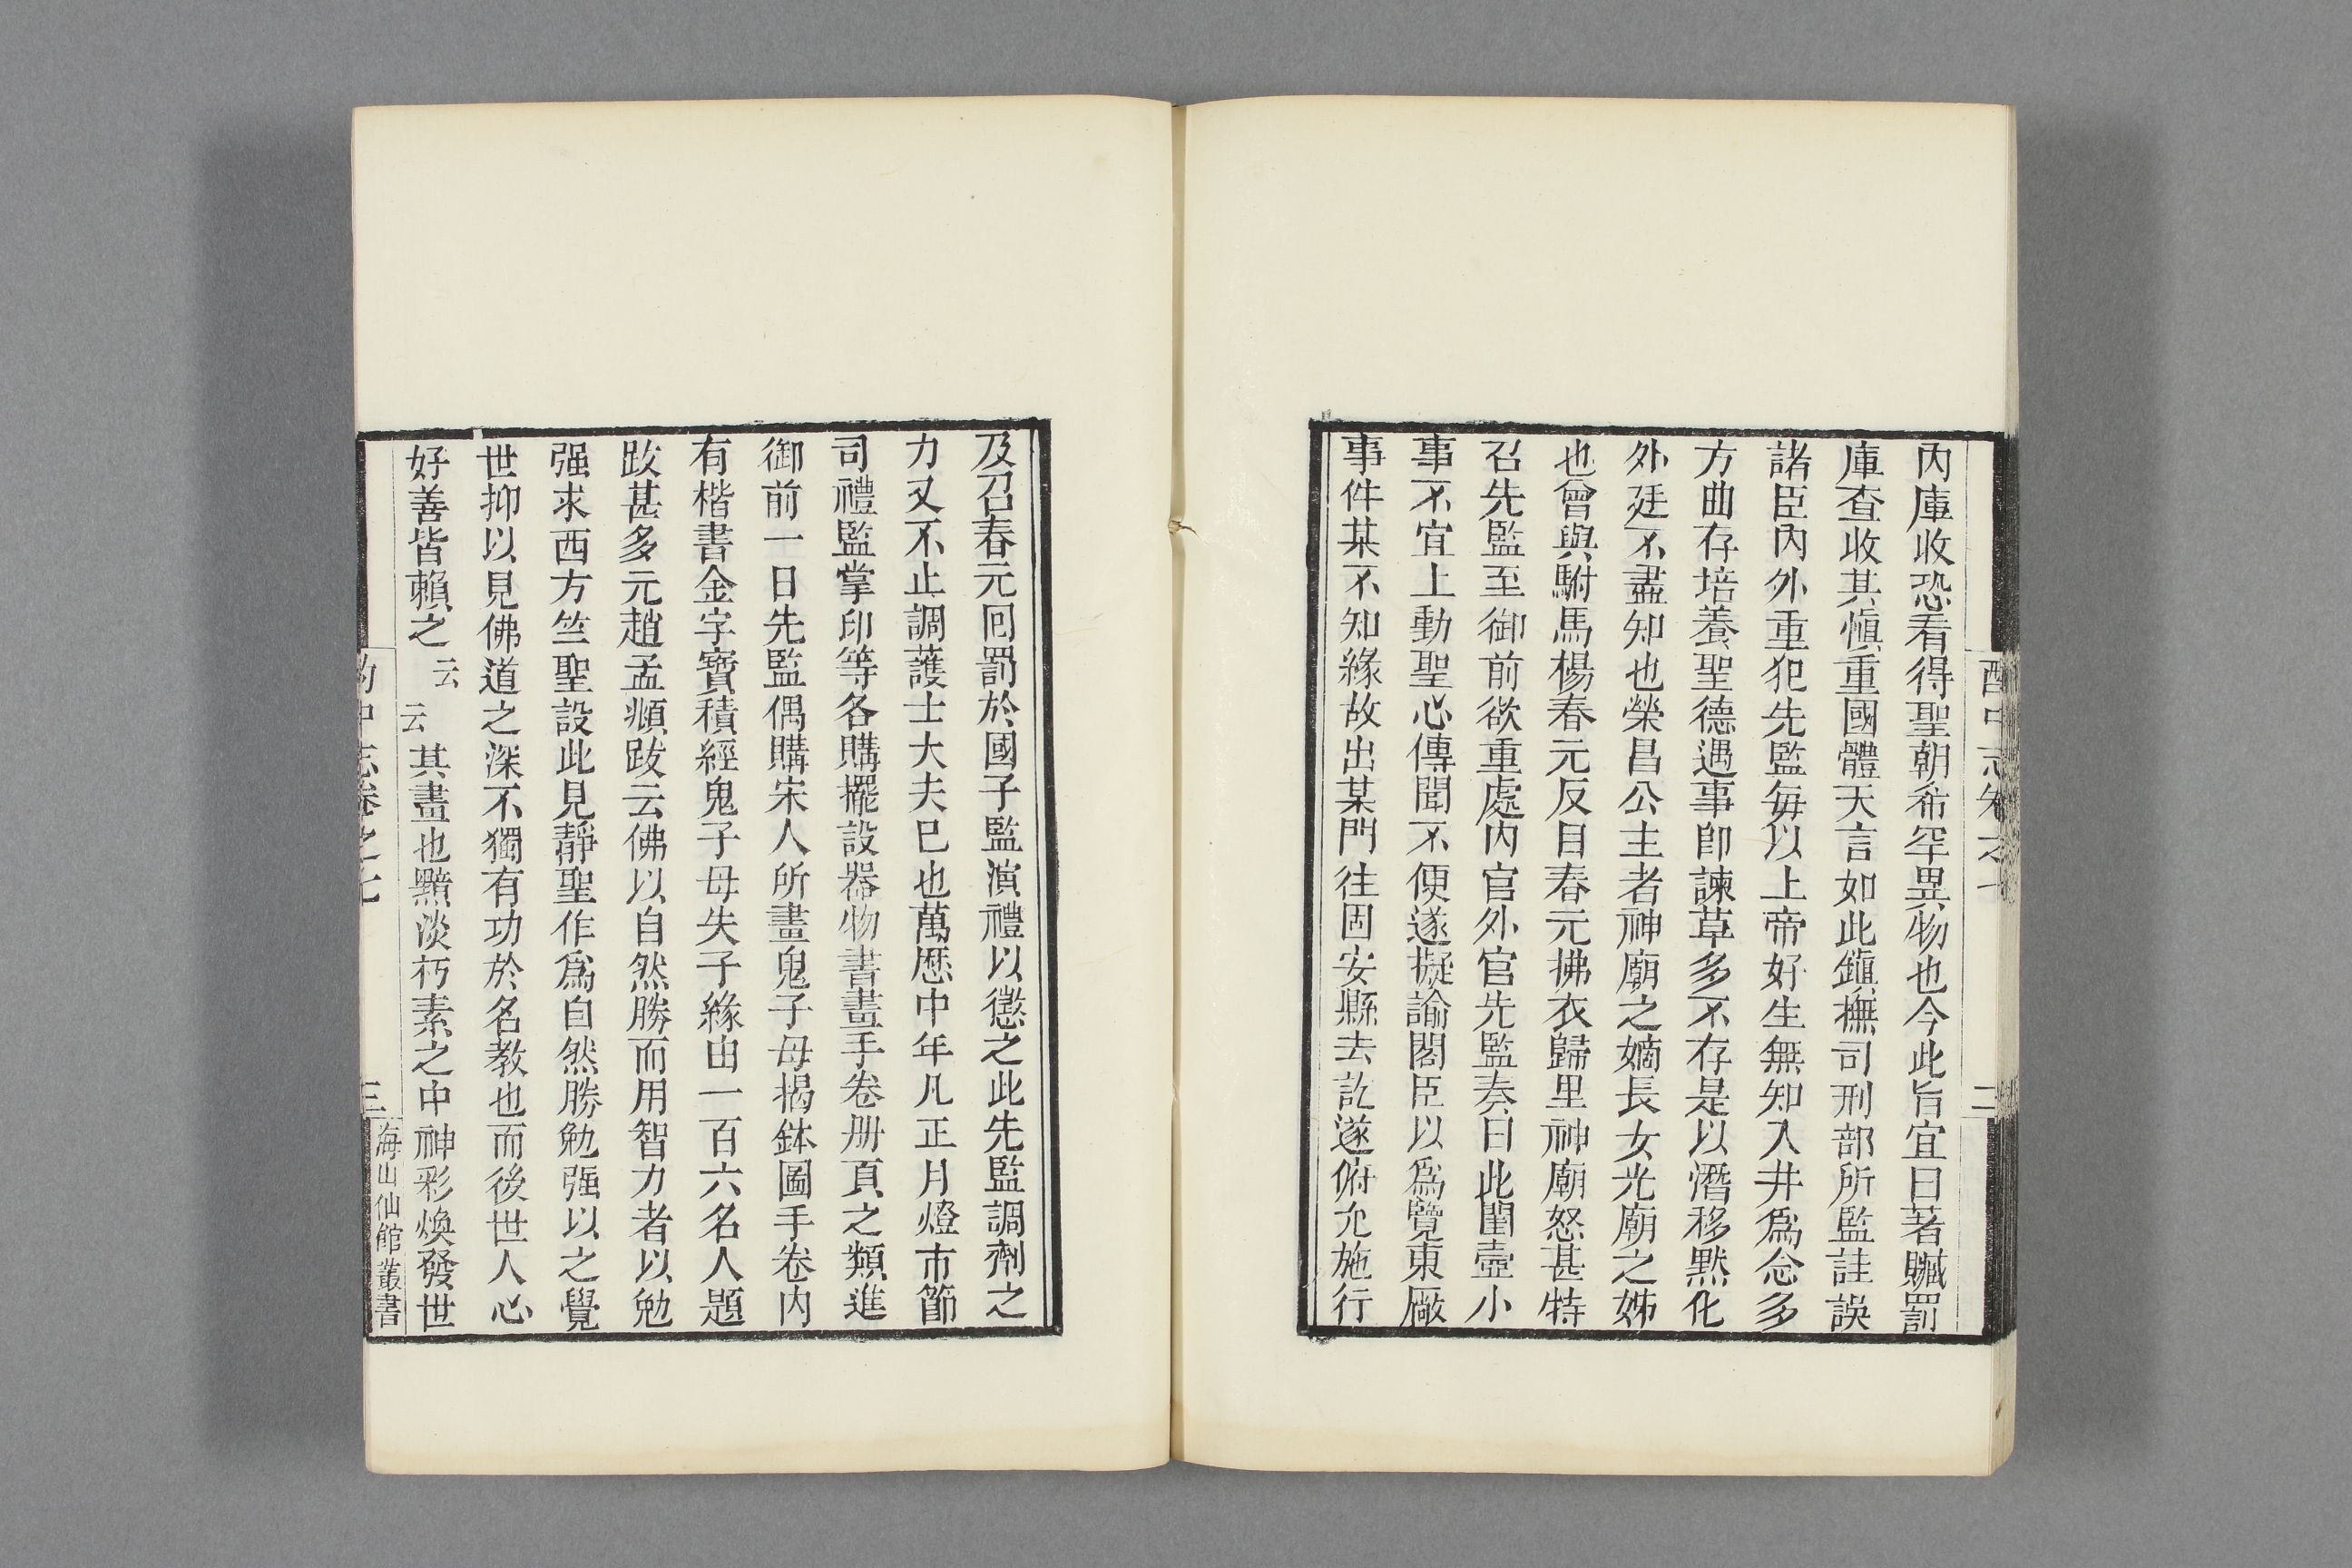 酌中志卷之七
二
內庫收恐看得聖朝希罕異物也今此旨宜曰著贓罰
庫查收其愼重國體天言如此鎮撫司刑部所監詿誤
諸臣內外重犯先監每以上帝好生無知入井爲念多
方曲存培養聖德遇事卽諫草多不存是以潛移默化
外廷不盡知也榮昌公主者神廟之嫡長女光廟之姊
也曾與駙馬楊春元反目春元拂衣歸里神廟怒甚特
召先監至御前欲重處內官外官先監奏曰此閨壼小
事不宜上動聖心傳聞不便遂擬諭閣臣以爲覽東廠
事件某不知緣故出某門往固安縣去訖遂俯允施行
及召春元囘罰於國子監演禮以懲之此先監調劑之
力又不止調護士大夫已也萬歷中年凡正月燈市節
司禮監掌印等各購擺設器物書畫手卷册頁之類進
御前一日先監偶購宋人所畫鬼子母揭鉢圖手卷內
有楷書金字寶積經鬼子母失子緣由一百六名人題
跋甚多元趙孟頫跋云佛以自然勝而用智力者以勉
强求西方竺聖設此見靜聖作爲自然勝勉强以之覺
世抑以見佛道之深不獨有功於名教也而後世人心
好善皆賴之云云其畫也黯淡朽素之中神彩煥發世
酌中志卷之七
三
海山仙館叢書